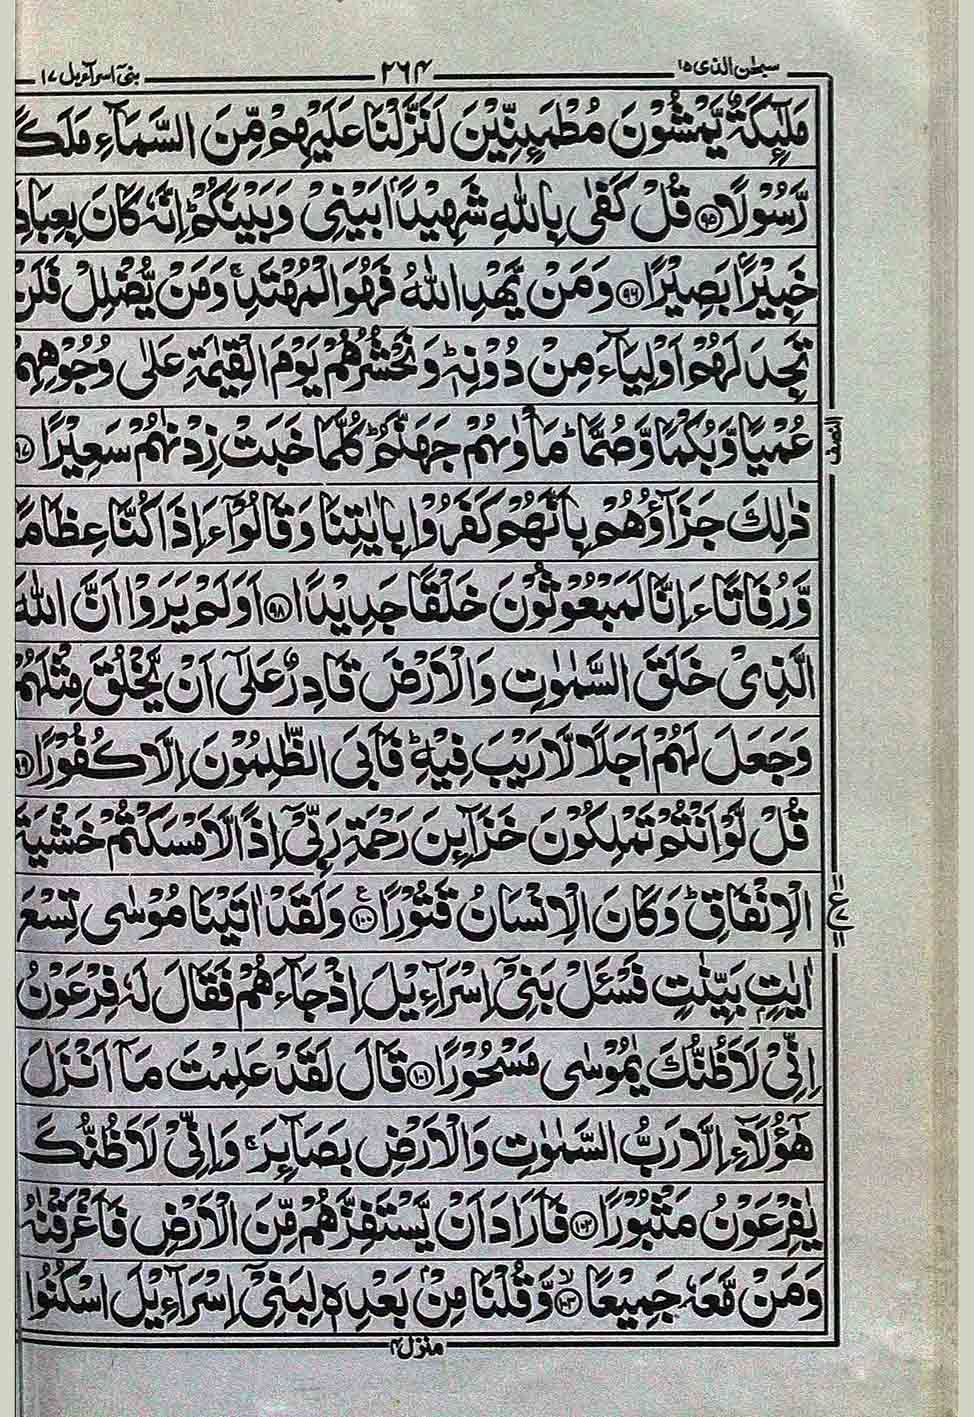 سبحٰن الذی ۱۵ ۲۶۴ بنیٓ اسرآءیل ۱۷
مَلٰٓئِكَةٌ یَّمْشُوْنَ مُطْمَىِٕنِّیْنَ لَنَزَّلْنَا عَلَیْهِمْ مِّنَ السَّمَآءِ مَلَكًا
رَّسُوْلًا ﴿۹۵﴾ قُلْ كَفٰى بِاللّٰهِ شَهِیْدًۢا بَیْنِیْ وَ بَیْنَكُمْ ؕ اِنَّهٗ كَانَ بِعِبَادِهٖ
خَبِیْرًۢا بَصِیْرًا ﴿۹۶﴾ وَ مَنْ یَّهْدِ اللّٰهُ فَهُوَ الْمُهْتَدِ ۚ وَ مَنْ یُّضْلِلْ فَلَنْ
تَجِدَ لَهُمْ اَوْلِیَآءَ مِنْ دُوْنِهٖ ؕ وَ نَحْشُرُهُمْ یَوْمَ الْقِیٰمَةِ عَلٰى وُجُوْهِهِمْ
عُمْیًا وَّ بُكْمًا وَّ صُمًّا ؕ مَاْوٰىهُمْ جَهَنَّمُ ؕ كُلَّمَا خَبَتْ زِدْنٰهُمْ سَعِیْرًا ﴿۹۷﴾
النصف
ذٰلِكَ جَزَآؤُهُمْ بِاَنَّهُمْ كَفَرُوْا بِاٰیٰتِنَا وَ قَالُوْۤا ءَاِذَا كُنَّا عِظَامًا
وَّ رُفَاتًا ءَاِنَّا لَمَبْعُوْثُوْنَ خَلْقًا جَدِیْدًا ﴿۹۸﴾ اَوَ لَمْ یَرَوْا اَنَّ اللّٰهَ
الَّذِیْ خَلَقَ السَّمٰوٰتِ وَ الْاَرْضَ قَادِرٌ عَلٰۤى اَنْ یَّخْلُقَ مِثْلَهُمْ
وَ جَعَلَ لَهُمْ اَجَلًا لَّا رَیْبَ فِیْهِ ؕ فَاَبَى الظّٰلِمُوْنَ اِلَّا كُفُوْرًا ﴿۹۹﴾
قُلْ لَّوْ اَنْتُمْ تَمْلِكُوْنَ خَزَآىِٕنَ رَحْمَةِ رَبِّیْۤ اِذًا لَّاَمْسَكْتُمْ خَشْیَةَ
الْاِنْفَاقِ ؕ وَ كَانَ الْاِنْسَانُ قَتُوْرًا ﴿۱۰۰﴾ وَ لَقَدْ اٰتَیْنَا مُوْسٰى تِسْعَ
اٰیٰتٍۭ بَیِّنٰتٍ فَسْـَٔلْ بَنِیْۤ اِسْرَآءِیْلَ اِذْ جَآءَهُمْ فَقَالَ لَهٗ فِرْعَوْنُ
اِنِّیْ لَاَظُنُّكَ یٰمُوْسٰى مَسْحُوْرًا ﴿۱۰۱﴾ قَالَ لَقَدْ عَلِمْتَ مَاۤ اَنْزَلَ
هٰۤؤُلَآءِ اِلَّا رَبُّ السَّمٰوٰتِ وَ الْاَرْضِ بَصَآىِٕرَ ۚ وَ اِنِّیْ لَاَظُنُّكَ
یٰفِرْعَوْنُ مَثْبُوْرًا ﴿۱۰۲﴾ فَاَرَادَ اَنْ یَّسْتَفِزَّهُمْ مِّنَ الْاَرْضِ فَاَغْرَقْنٰهُ
وَ مَنْ مَّعَهٗ جَمِیْعًا ﴿۱۰۳﴾ وَّ قُلْنَا مِنْۢ بَعْدِهٖ لِبَنِیْۤ اِسْرَآءِیْلَ اسْكُنُوا
منزل ۴